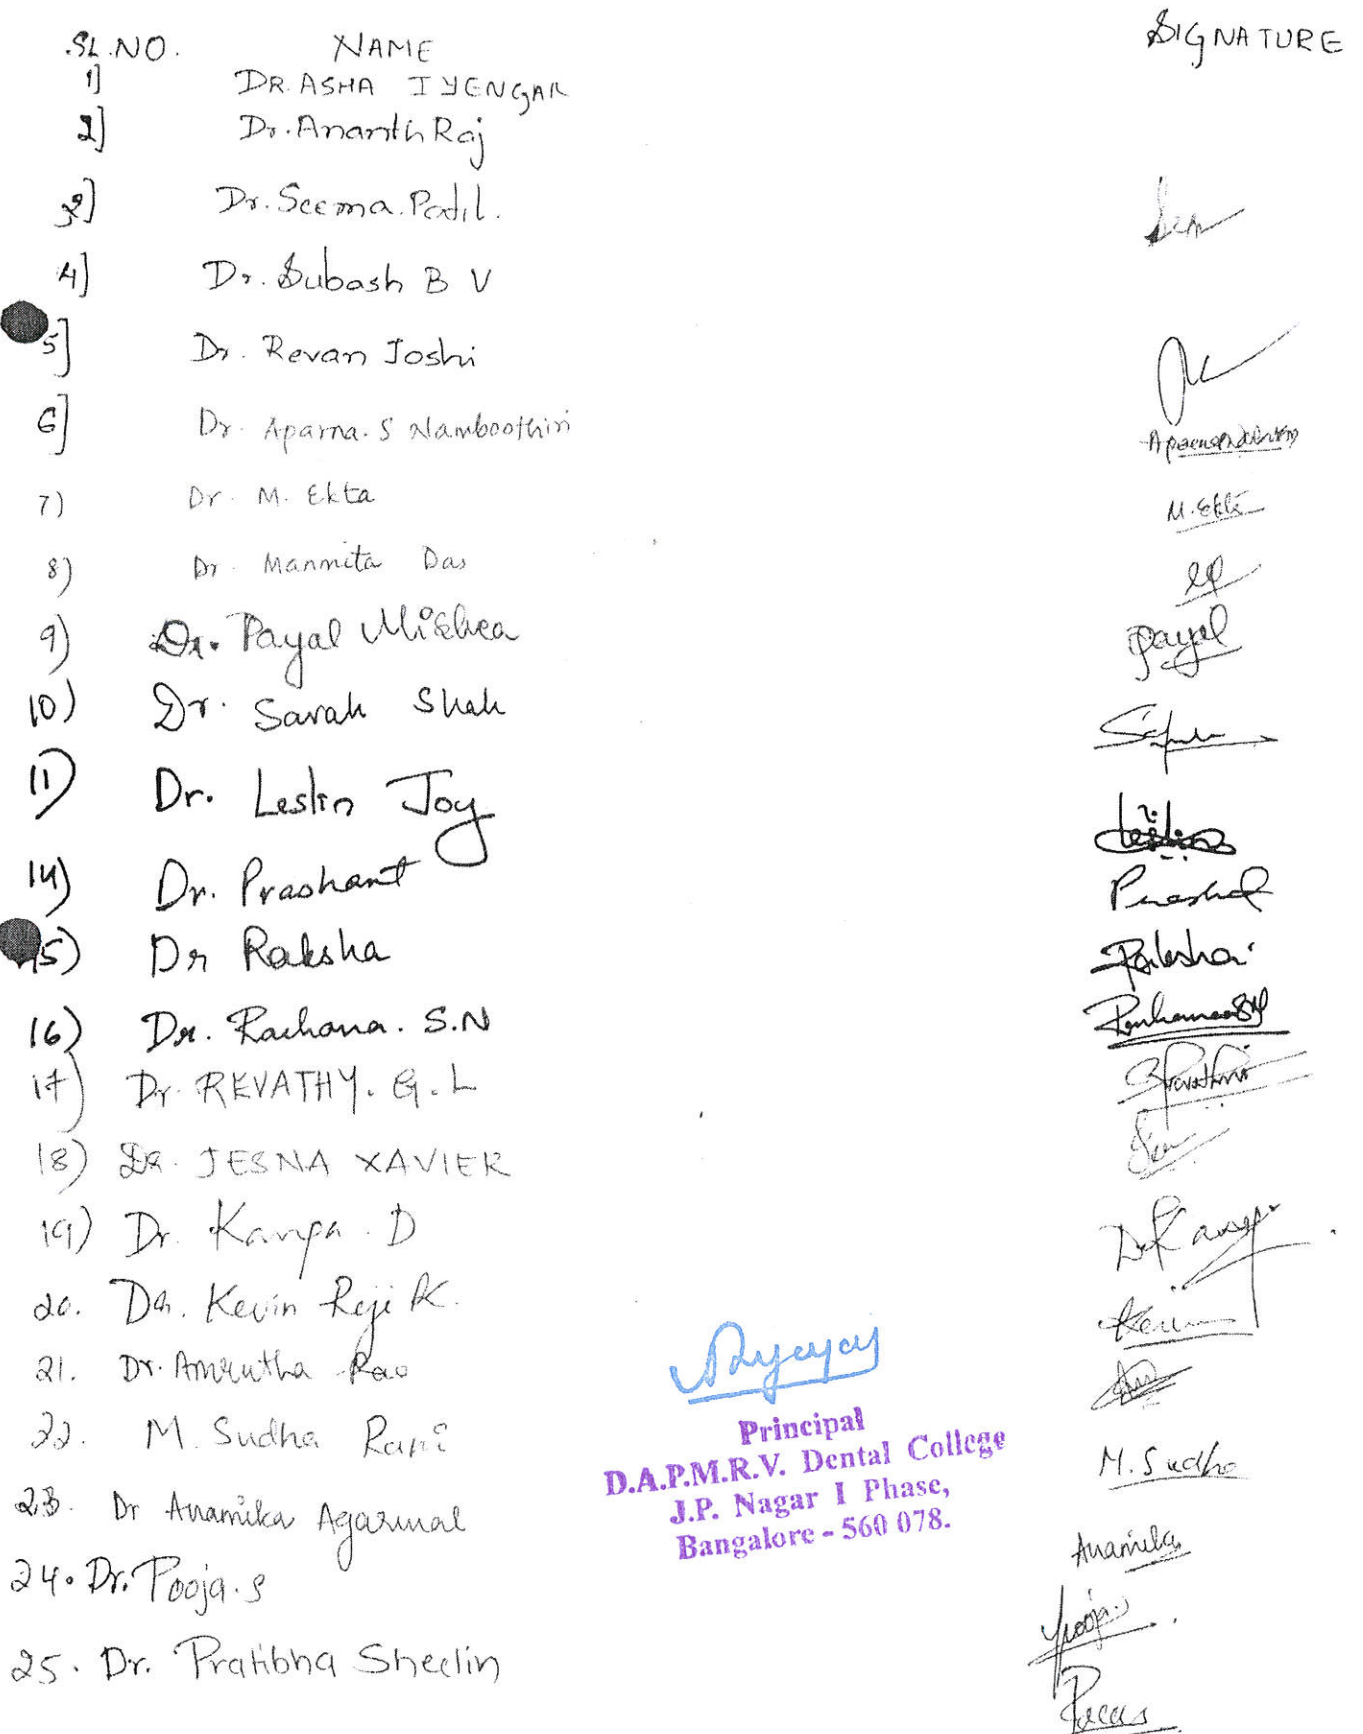 SL.NO. NAME SIGNATURE
1] DR. ASHA IYENGAR
2] Dr. Ananth Raj
3] Dr. Seema. Patil.
4] Dr. Subash B V
5] Dr. Revan Joshi
6] Dr. Aparna. S Namboothiri
7) Dr. M. Ekta M. Ekta
8) Dr. Manmita Das
9) Dr. Payal Mishra Payal
10) Dr. Sarah Shah
11) Dr. Leslin Joy Leslin
14) Dr. Prashant
15) Dr Raksha Raksha
16) Dr. Rachana. S.N
17) Dr. REVATHY. G. L
18) Dr. JESNA XAVIER
19) Dr. Kanga. D
20. Dr. Kevin Reji K.
21. Dr. Amrutha Rao
22. M. Sudha Rani M. Sudha
23. Dr Anamika Agarwal Anamika
24. Dr. Pooja. S Pooja.
25. Dr. Pratibha Sheelin
Principal
D.A.P.M.R.V. Dental College
J.P. Nagar I Phase,
Bangalore - 560 078.